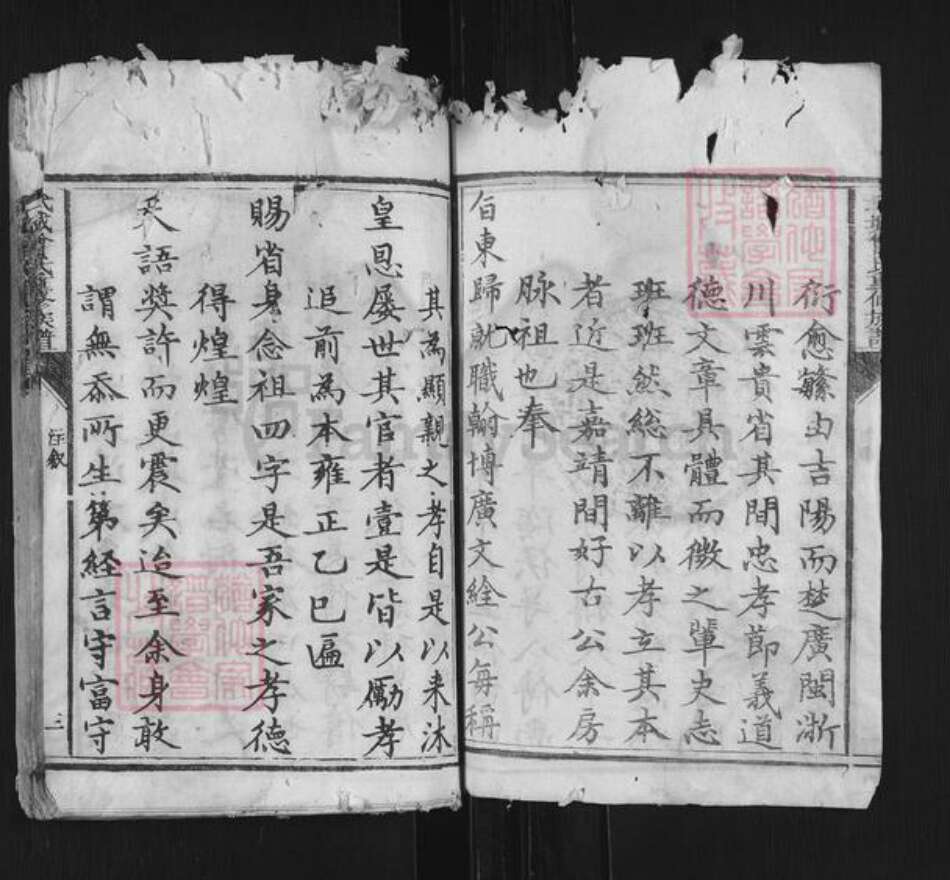 衍愈繁由吉陽而楚廣閩浙
川雲貴省其間忠孝節義道
德文章具體而微之軰史志
班班然総不離以孝立其本
者近是嘉靖間好古公余房
脉祖也奉
伯東歸就職翰博廣文銓公每稱
其為顯親之孝自是以来沐
皇恩屡世其官者壹是皆以勵孝
追前為本雍正乙巳匾
賜省身念祖四字是吾家之孝德
得煌煌
天語奖許而更震矣迨至余身敢
謂無忝所生第経言守富守
三